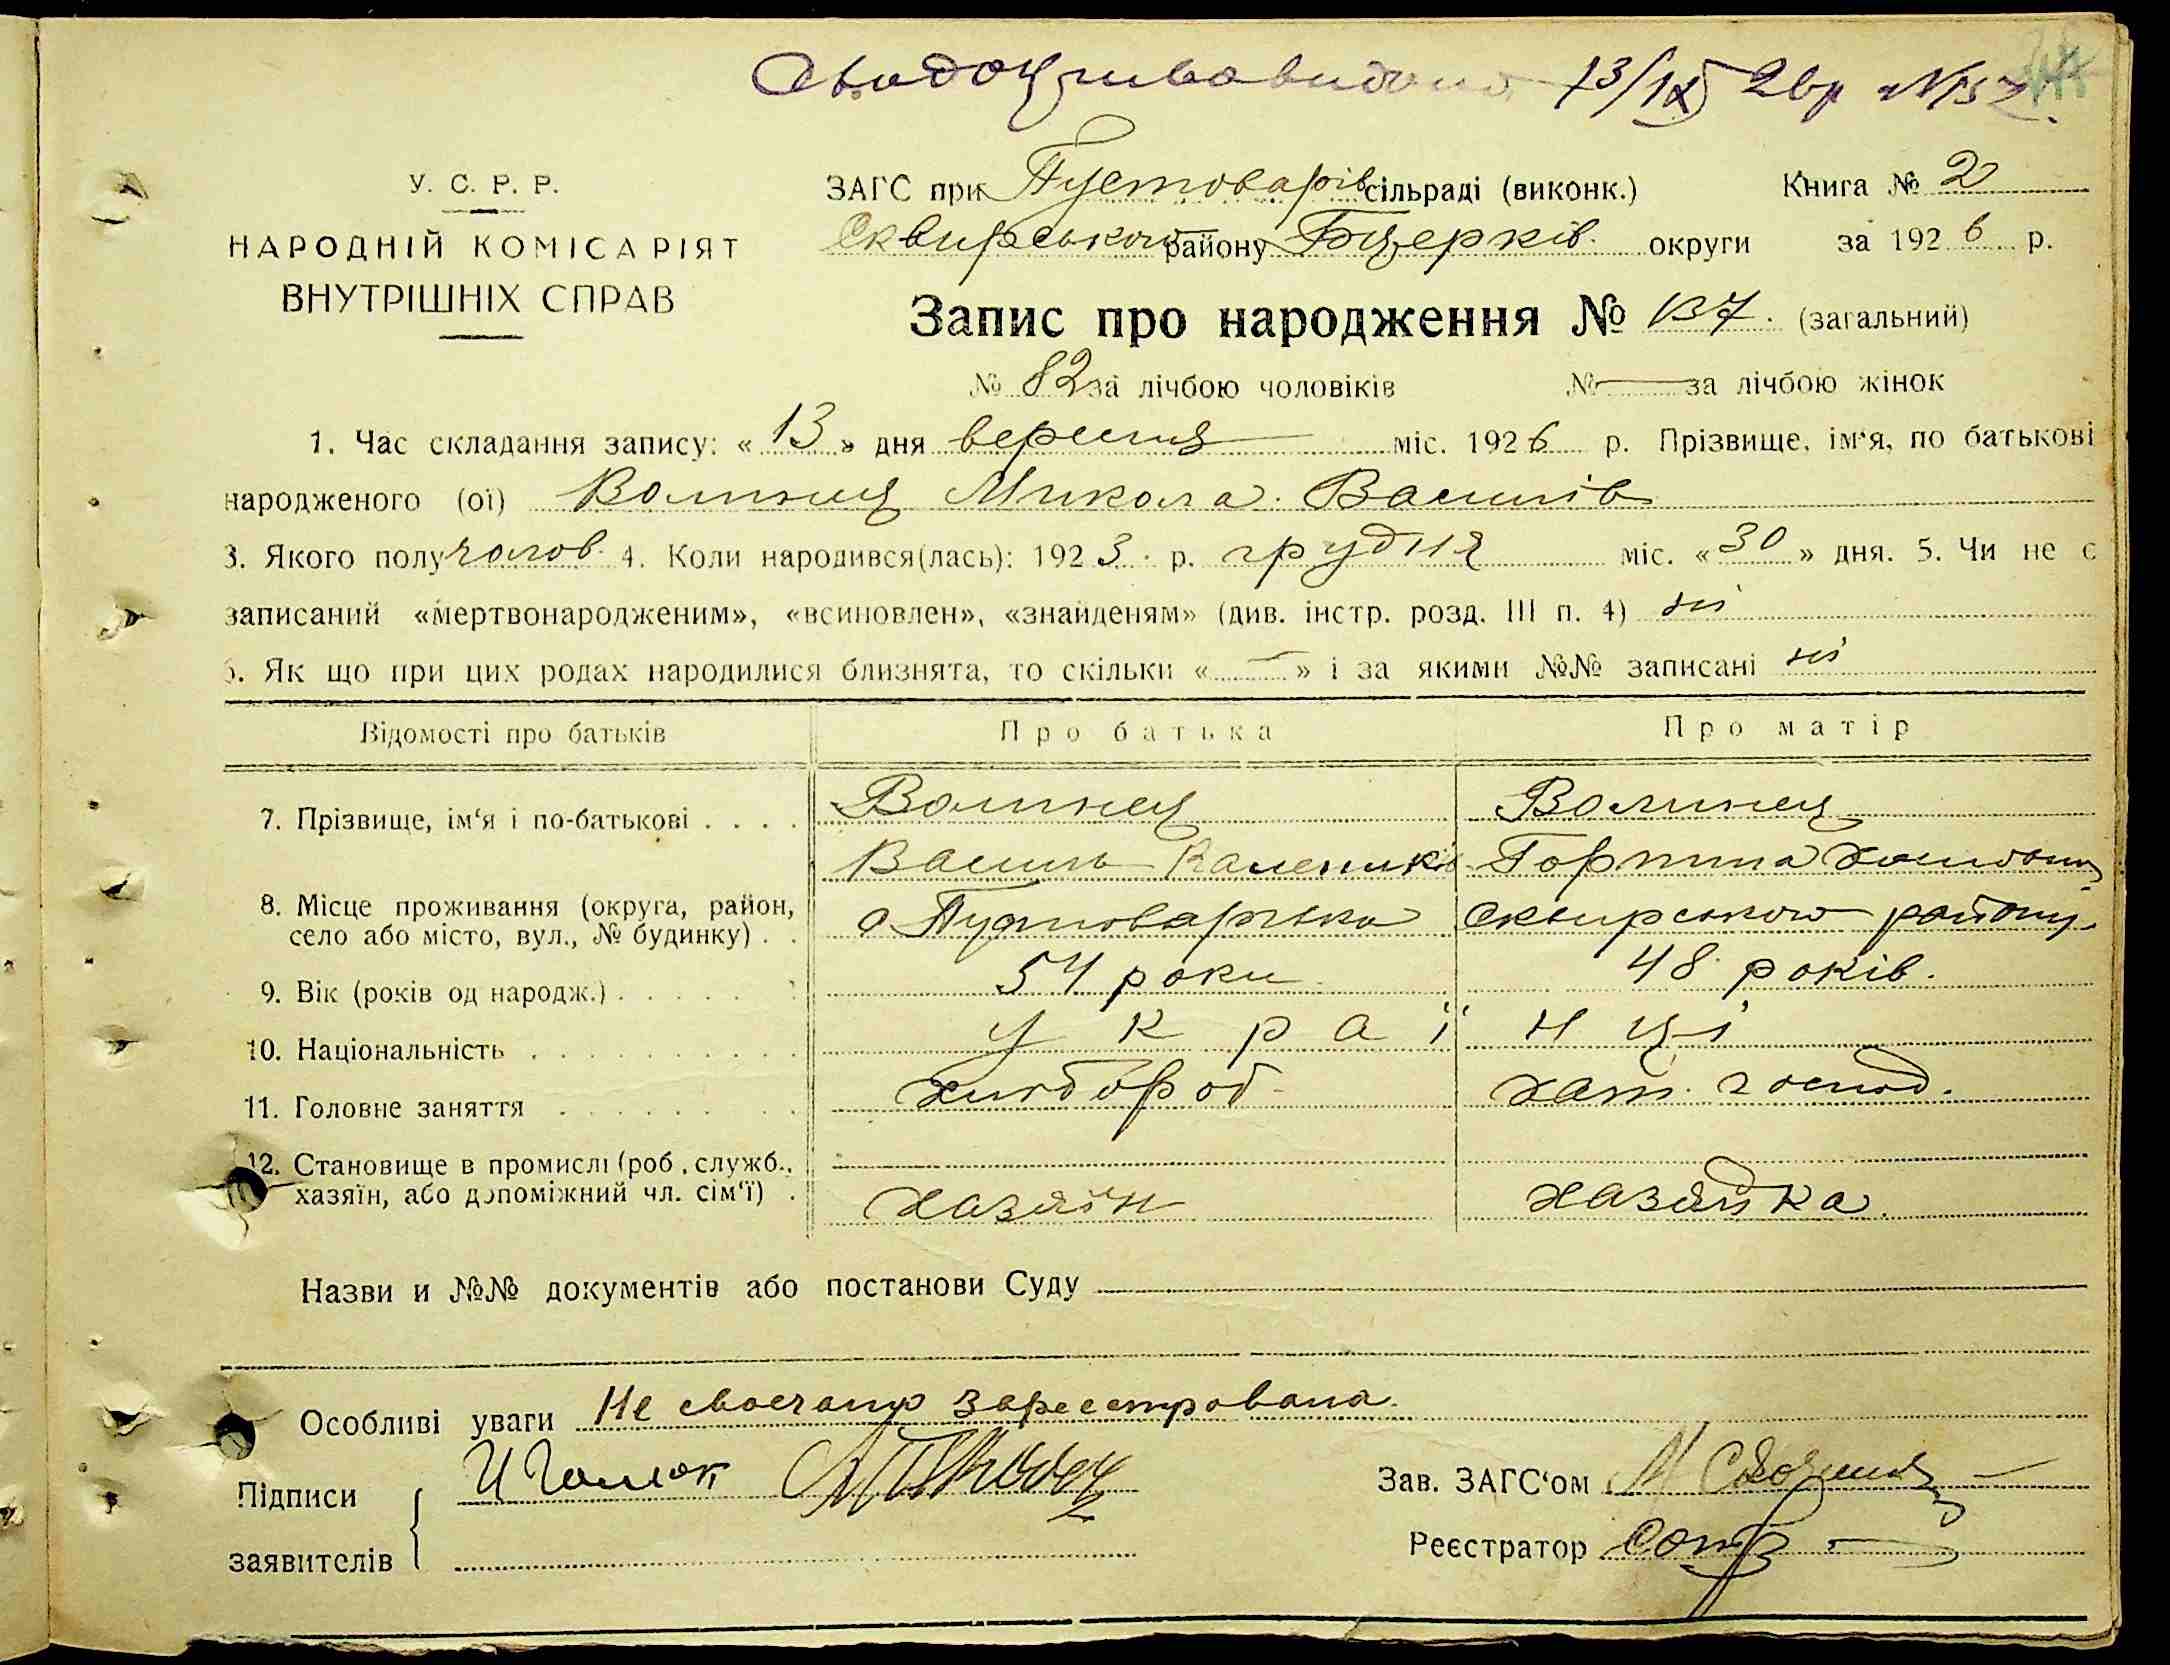 13/IX 26р №
У. С. Р. Р.
НАРОДНІЙ КОМІСАРІЯТ
ВНУТРІШНІХ СПРАВ
ЗАГС при Пустоварів сільраді (виконк.) Книга № 2
Сквирського району Бцерків. округи за 1926 р.
Запис про народження № 137. (загальний)
№ 82 за лічбою чоловіків № — за лічбою жінок
1. Час складання запису: «13» дня вересня міс. 1926 р. Прізвище, ім'я, по батькові
народженого (ої) Волинец Микола Василів
3. Якого полу чолов. 4. Коли народився(лась): 1923 р. грудня міс. «30» дня. 5. Чи не є
записаний «мертвонародженим», «всиновлен», «знайденям» (див. інстр. розд. III п. 4) ні
6. Як що при цих родах народилися близнята, то скільки «—» і за якими №№ записані ні
Відомості про батьків Про батька Про матір
7. Прізвище, ім'я і по-батькові Волинец Волинец
Василь Каленików Горпина
8. Місце проживання (округа, район, село або місто, вул., № будинку) с. Пустоварівка Сквирського району
9. Вік (років од народж.) 54 роки 48 років.
10. Національність українці
11. Головне заняття хлібороб хат. господ.
12. Становище в промислі (роб., служб., хазяїн, або допоміжний чл. сім'ї) хазяїн хазяйка
Назви и №№ документів або постанови Суду
Особливі уваги Не своєчасно зареєстрована
Підписи
заявителів
Зав. ЗАГС'ом
Реєстратор